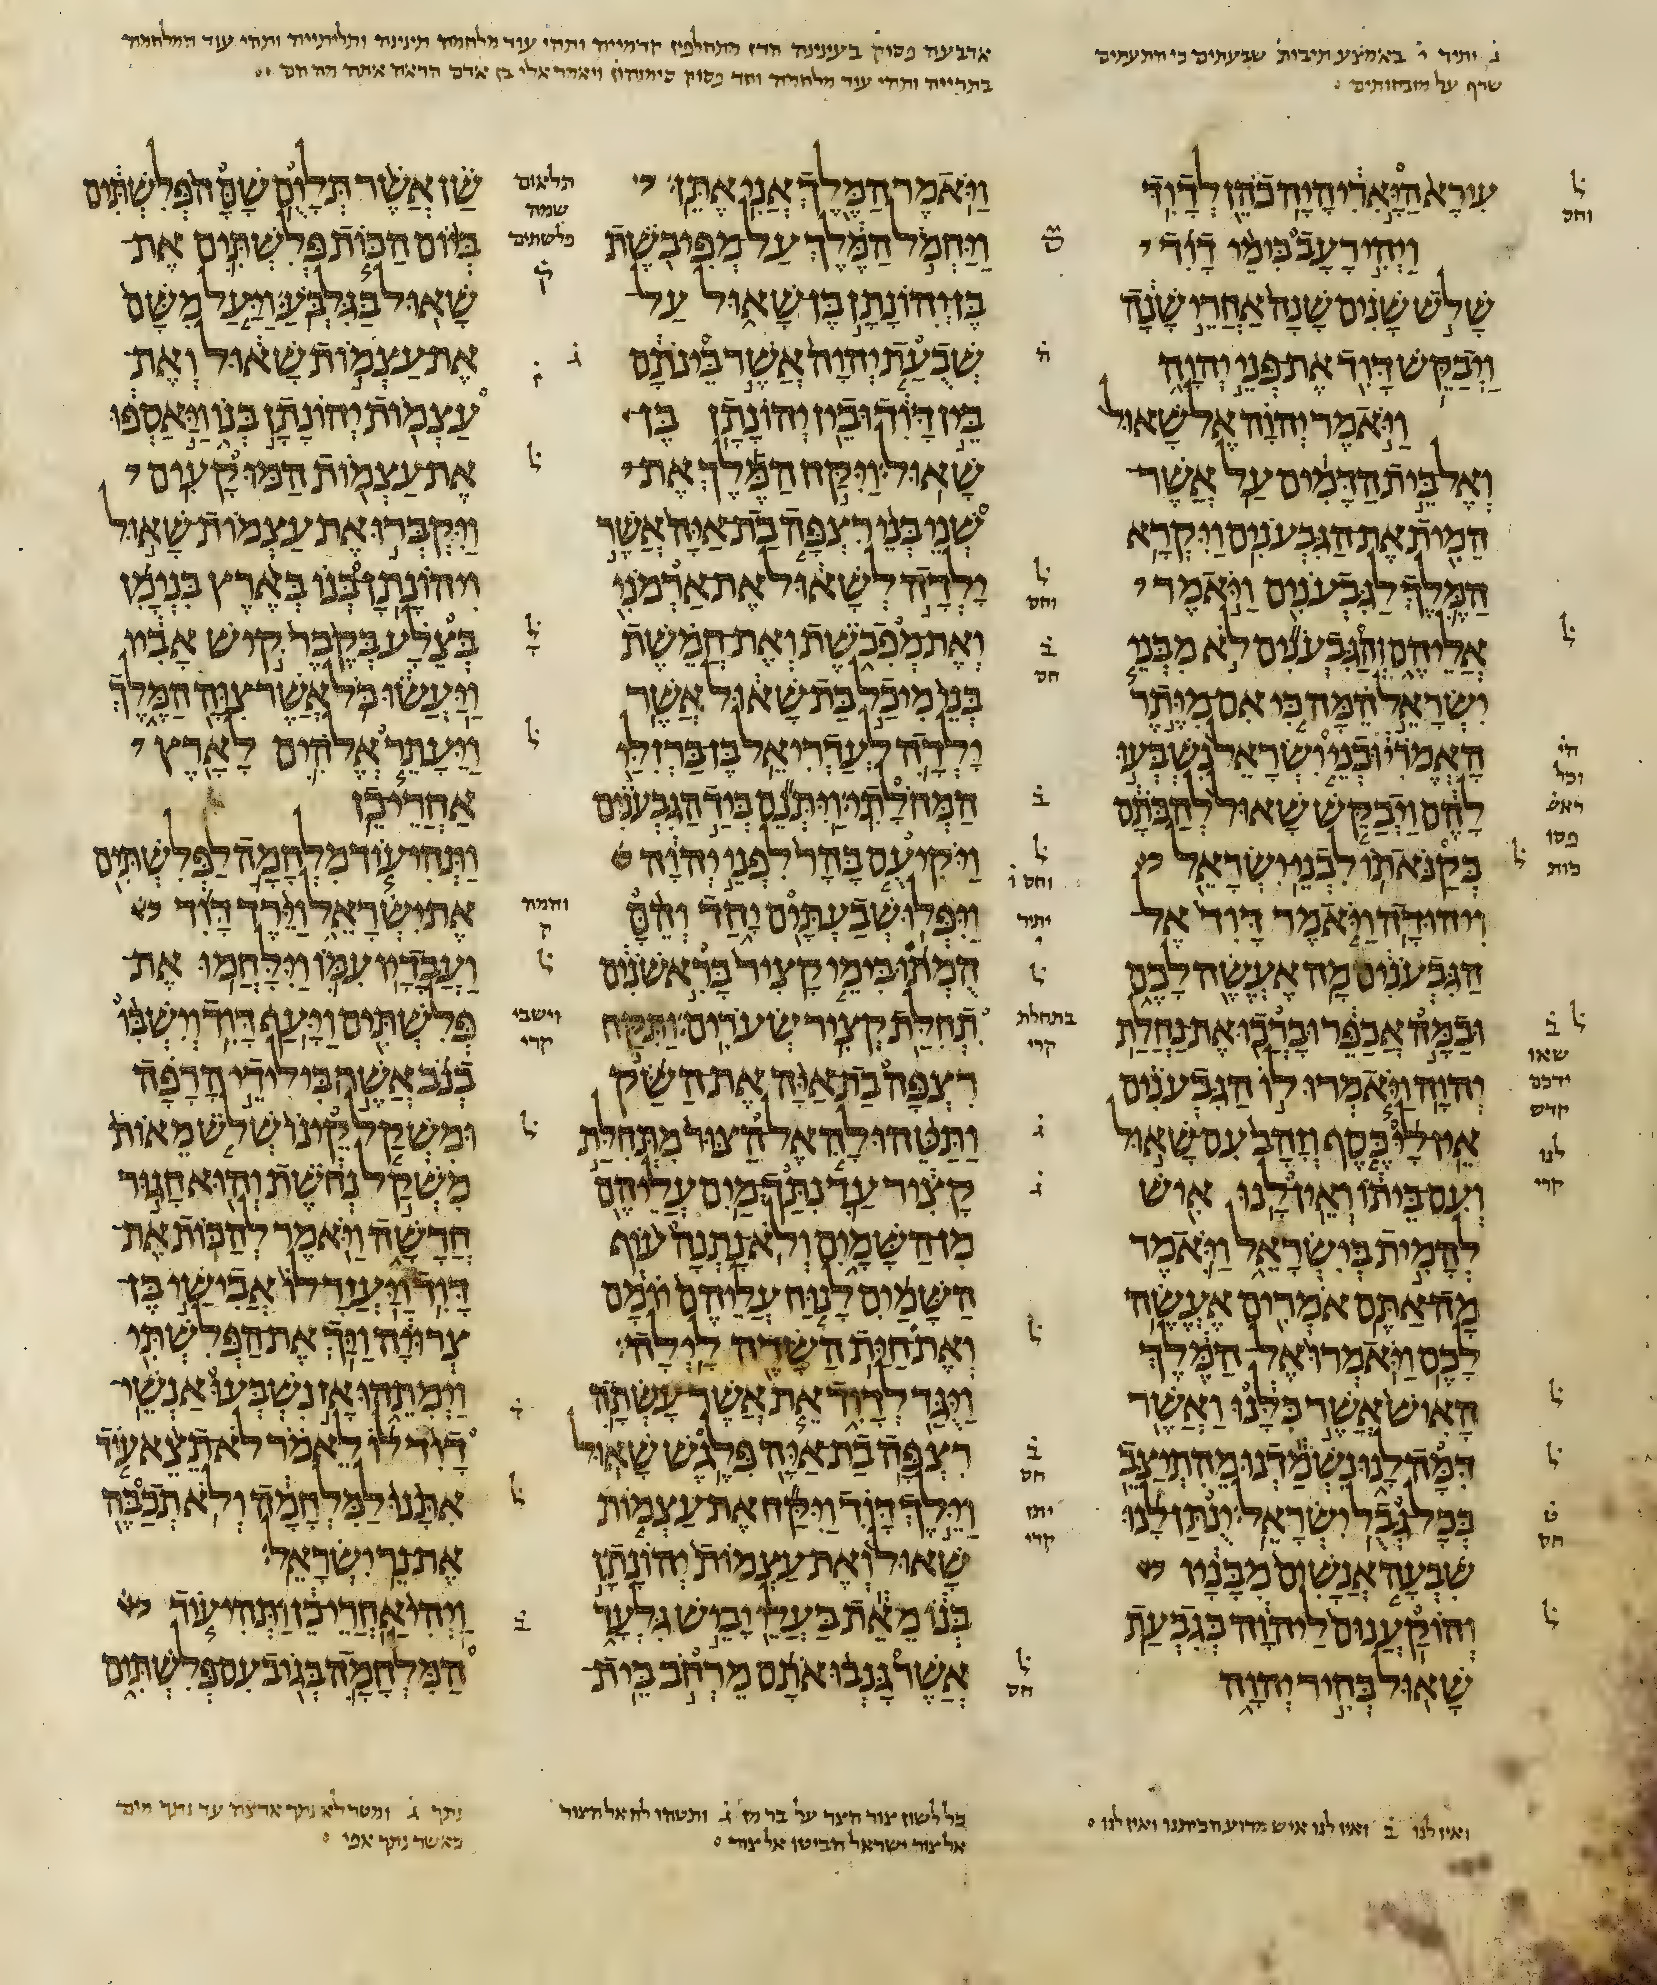 ג̇ יתיר י̇ באמצע תיבות שבעתים כי חתעתים
שרף על מזבחותים
ארבעה פסוק בעינינה חדא מתחלפין קדמייה ותהי עוד מלחמה תינינה ותליתייה ותהי עוד המלחמה
בתרייה ותהי עוד מלחמה וחד פסוק סימנהון ויאמר אלי בן אדם הראה אתה מה הם
עירא היארי היה כהן לדוד
ויהי רעב בימי דוד
שלש שנים שנה אחרי שנה
ויבקש דוד את פני יהוה
ויאמר יהוה אל שאול
ואל בית הדמים על אשר
המית את הגבענים ויקרא
המלך לגבענים ויאמר
אליהם והגבענים לא מבני
ישראל המה כי אם מיתר
האמרי ובני ישראל נשבעו
להם ויבקש שאול להכתם
בקנאתו לבני ישראל
ויהודה ויאמר דוד אל
הגבענים מה אעשה לכם
ובמה אכפר וברכו את נחלת
יהוה ויאמרו לו הגבענים
אין לי כסף וזהב עם שאול
ועם ביתו ואין לנו איש
להמית בישראל ויאמר
מה אתם אמרים אעשה
לכם ויאמרו אל המלך
האיש אשר כלנו ואשר
דמה לנו נשמדנו מהתיצב
בכל גבל ישראל ינתן לנו
שבעה אנשים מבניו
והוקענום ליהוה בגבעת
שאול בחיר יהוה
ל̇
וחס
ל̇
ל̇
ב̇
שאו
ידכם
קדש
לנו
קרי
ל̇
ל̇
ט̇
חס
ל̇
ויאמר המלך אני אתן
ויחמל המלך על מפיבשת
בן יהונתן בן שאול על
שבעת יהוה אשר בינתם
בין דוד ובין יהונתן בן
שאול ויקח המלך את
שני בני רצפה בת איה אשר
ילדה לשאול את ארמני
ואת מפבשת ואת חמשת
בני מיכל בת שאול אשר
ילדה לעדריאל בן ברזלי
המחלתי ויתנם ביד הגבענים
ויקיעם בהר לפני יהוה
ויפלו שבעתים יחד והם
המתו בימי קציר בראשנים
תחלת קציר שערים ותקח
רצפה בת איה את השק
ותטהו לה אל הצור מתחלת
קציר עד נתך מים עליהם
מן השמים ולא נתנה עוף
השמים לנוח עליהם יומם
ואת חית השדה לילה
ויגד לדוד את אשר עשתה
רצפה בת איה פלגש שאול
וילך דוד ויקח את עצמות
שאול ואת עצמות יהונתן
בנו מאת בעלי יביש גלעד
אשר גנבו אתם מרחב בית
ל̇
וחס
ב̇
חס
ב̇
ל̇
יתיר
י
ל̇
בתחלת
קרי
ג̇
ג̇
ל̇
ב̇
חס
קרי
ל̇
חס
שן אשר תלום שם הפלשתים
ביום הכות פלשתים את
שאול בגלבע ויעל משם
את עצמות שאול ואת
עצמות יהונתן בנו ויאספו
את עצמות המוקעים
ויקברו את עצמות שאול
ויהונתן בנו בארץ בנימן
בצלע בקבר קיש אביו
ויעשו כל אשר צוה המלך
ויעתר אלהים לארץ
אחרי כן
ותהי עוד מלחמה לפלשתים
את ישראל וירד דוד
ועבדיו עמו וילחמו את
פלשתים ויעף דוד וישבו
בנב אשר בילידי הרפה
ומשקל קינו שלש מאות
משקל נחשת והוא חגור
חדשה ויאמר להכות את
דוד ויעזר לו אבישי בן
צרויה ויך את הפלשתי
וימתהו אז נשבעו אנשי
דוד לו לאמר לא תצא עוד
אתנו למלחמה ולא תכבה
את נר ישראל
ויהי אחרי כן ותהי עוד
המלחמה בגוב עם פלשתים
תלאום
שמה
פלשתים
ק̇
ג̇
ל̇
ל̇
ל̇
והמה
ק
ל̇
וישבי
קרי
ל̇
ל̇
ב̇
ואין לנו ב̇ ואין לנו איש מדוע חכיתנו ואין לנו
כל לשון צור הצר על בר מן ג̇ ותטהו לה אל הצור
אל צור ישראל הביטו אל צור
נתך ג̇ ומטר לא נתך ארצה עד נתך מים
כאשר נתך אפי